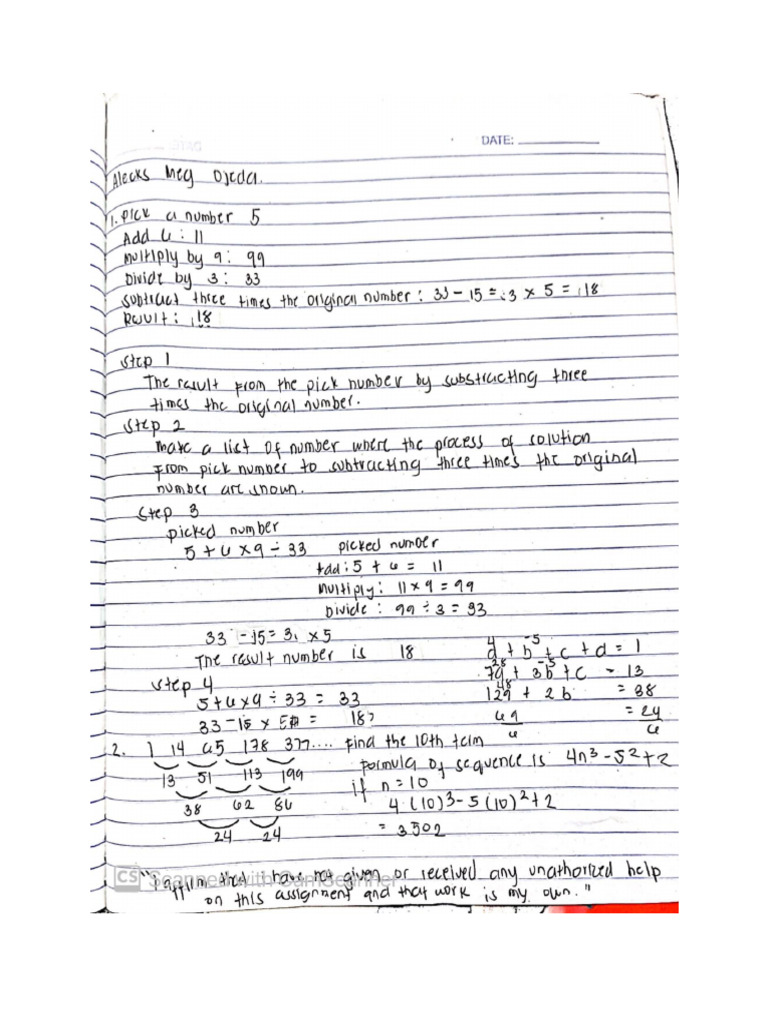 DATE:
Alecks Meg Ojeda.
1. Pick a number 5
Add 6 : 11
Multiply by 9 : 99
Divide by 3 : 33
Subtract three times the original number : 33 - 15 = : 3 x 5 = : 18
Result : 18
Step 1
The result from the pick number by substracting three
times the original number.
Step 2
make a list of number where the process of solution
from pick number to subtracting three times the original
number are shown.
Step 3
picked number
5 + 6 x 9 ÷ 33 picked number
Add : 5 + 6 = 11
Multiply : 11 x 9 = 99
Divide : 99 ÷ 3 = 33
33 - 15 = 3. x 5
The result number is 18
4 -5
a + b + c + d = 1
28 -5
7a + 3b + c = 13
Step 4
48
12a + 2b = 38
5 + 6 x 9 ÷ 33 = 33
6a = 24
33 - 15 x = 18
6 6
2. 1 14 45 178 377.... Find the 10th term
13 51 113 199
formula of sequence is 4n³ - 5² + 2
if n = 10
38 62 86
4 (10)³ - 5 (10)² + 2
24 24
= 3502
CS Scanned with CamScanner
"I affirm that I have not given or received any unathorized help
on this assignment and that work is my own."